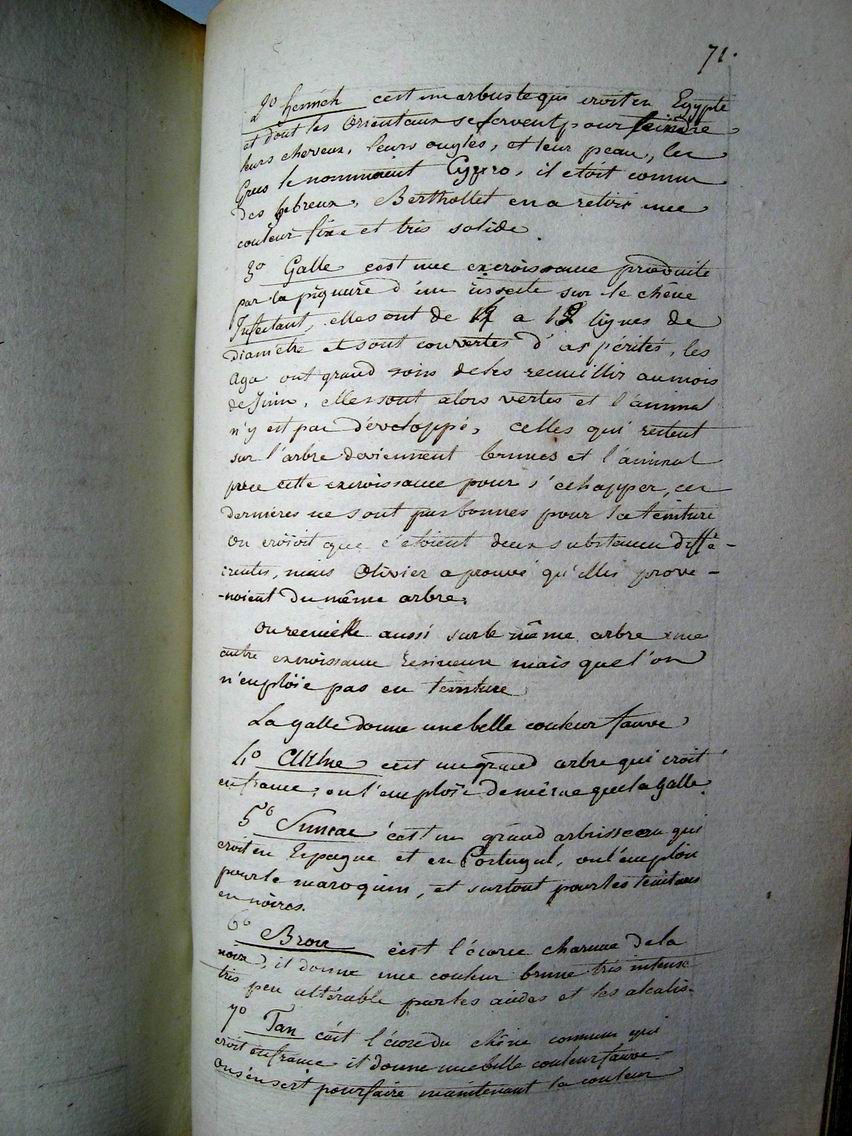 71.
2° henneh c'est un arbuste qui croit en Egypte
et dont les Orientaux se servent pour teindre
leurs cheveux, leurs ongles, et leur peau, les
Grecs le nommoient Cypro, il etoit connu
des hebreux, Berthollet en a retiré une
couleur fixe et très solide
3° Galle c'est une excroissance produite
par la piquure d'un insecte sur le chêne
Infectant, elles ont de a 12 lignes de
diametre et sont couvertes d'aspérités, les
Aga ont grand soins de les recueillir au mois
de Juin, elles sont alors vertes et l'animal
n'y est pas développé, celles qui restent
sur l'arbre deviennent brunes et l'animal
perce cette excroissance pour s'échapper, ces
dernières ne sont pas bonnes pour la teinture
on croioit que c'etoient deux substances diffe-
rentes, mais Olivier a prouvé qu'elles prove-
-noient du même arbre.
On recueille aussi sur le même arbre une
autre excroissance resineuse mais que l'on
n'emploïe pas en teinture
La galle donne une belle couleur fauve
4° c'est un grand arbre qui croit
en france, on l'emploïe de même que la galle.
5° Sumac c'est un grand arbrisseau qui
croit en Espagne et en Portugal, on l'emploie
pour le maroquin, et surtout pour les teintures
en noires.
6° Brou c'est l'écorce charnue de la
noix, il donne une couleur brune très intense
très peu altérable par les acides et les alcalis.
7° Tan c'est l'écorce du chêne commun qui
croit en france il donne une belle couleur fauve
on s'en sert pour faire maintenant la couleur